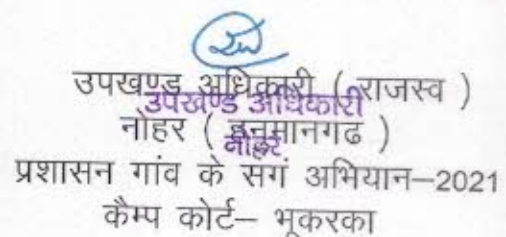 उपखण्ड अधिकारी ( राजस्व )
उपखण्ड अधिकारी
नोहर ( हनुमानगढ )
नोहर
प्रशासन गांव के संग अभियान–2021
कैम्प कोर्ट– भूकरका